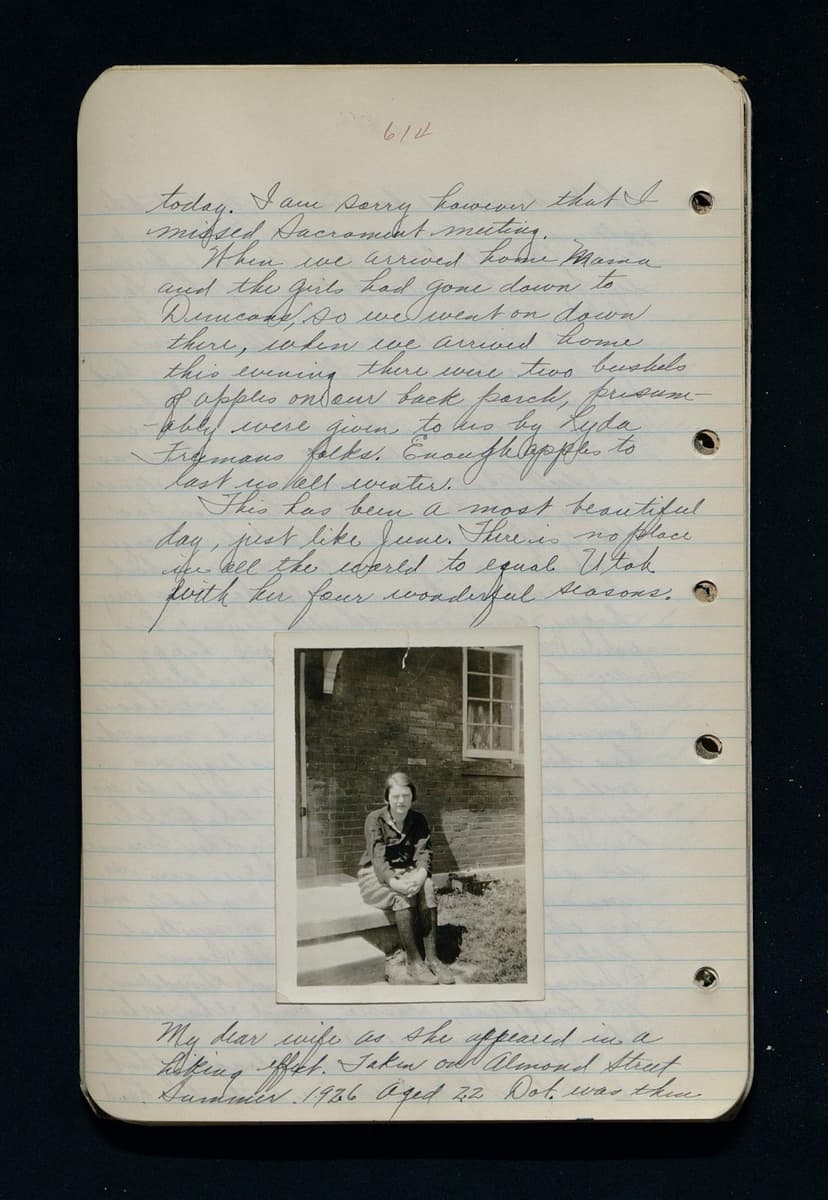 614
today. I am sorry however that I
missed Sacrament meeting.
When we arrived home Mama
and the girls had gone down to
Duncans, so we went on down
there, when we arrived home
this evening there were two bushels
of apples on our back porch, presum-
-ably were given to us by Lyda
Fremans folks. Enough apples to
last us all winter.
This has been a most beautiful
day, just like June. There is no place
in all the world to equal Utah
with her four wonderful seasons.
My dear wife as she appeared in a
hiking effect. Taken on Almond Street
Summer 1926 Aged 22 Dot. was then